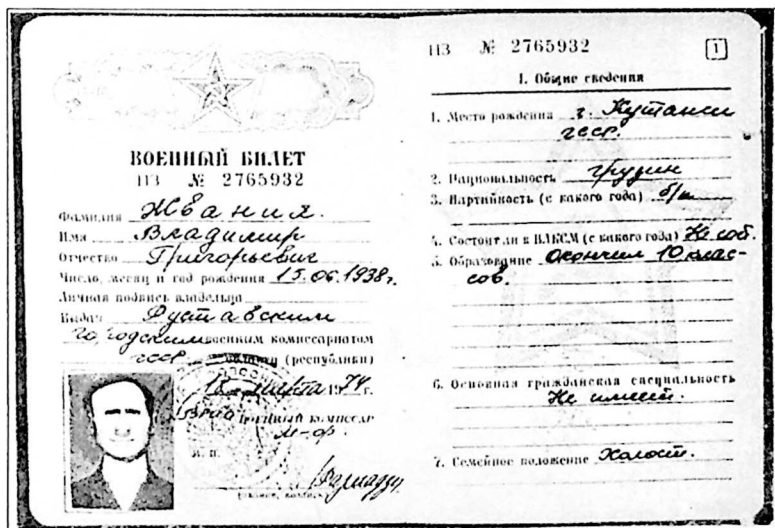 ВОЕННЫЙ БИЛЕТ
НЗ № 2765932
Фамилия Жвания.
Имя Владимир
Отчество Григорьевич
Число, месяц и год рождения 15.06.1938г.
Личная подпись владельца
Выдан Руставским
городским военным комиссариатом
гсср области (республики)
марта 1974 г.
Врио Военный комиссар
м-ор.
М. П.
НЗ № 2765932
1
I. Общие сведения
1. Место рождения г. Кутаиси
гсср.
2. Национальность грузин
3. Партийность (с какого года) б/п
4. Состоит ли в ВЛКСМ (с какого года) Не сост.
5. Образование Окончил 10 клас-
сов.
6. Основная гражданская специальность
Не имеет.
7. Семейное положение Холост.